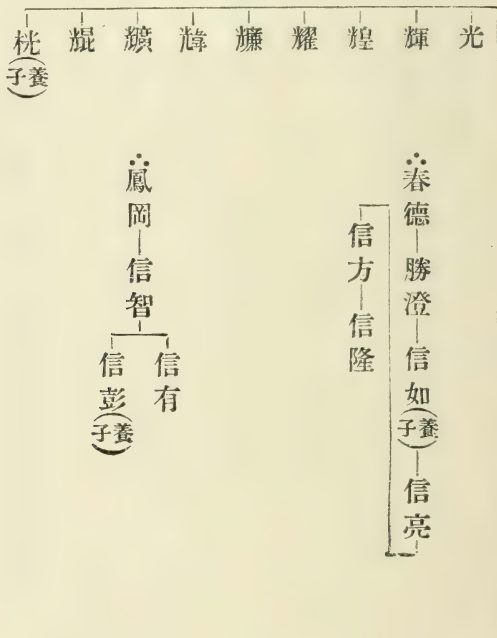 光
輝
煌
耀
桄(養子)
春德―勝澄―信如(養子)―信亮
信方―信隆
鳳岡―信智
信有
信彭(養子)